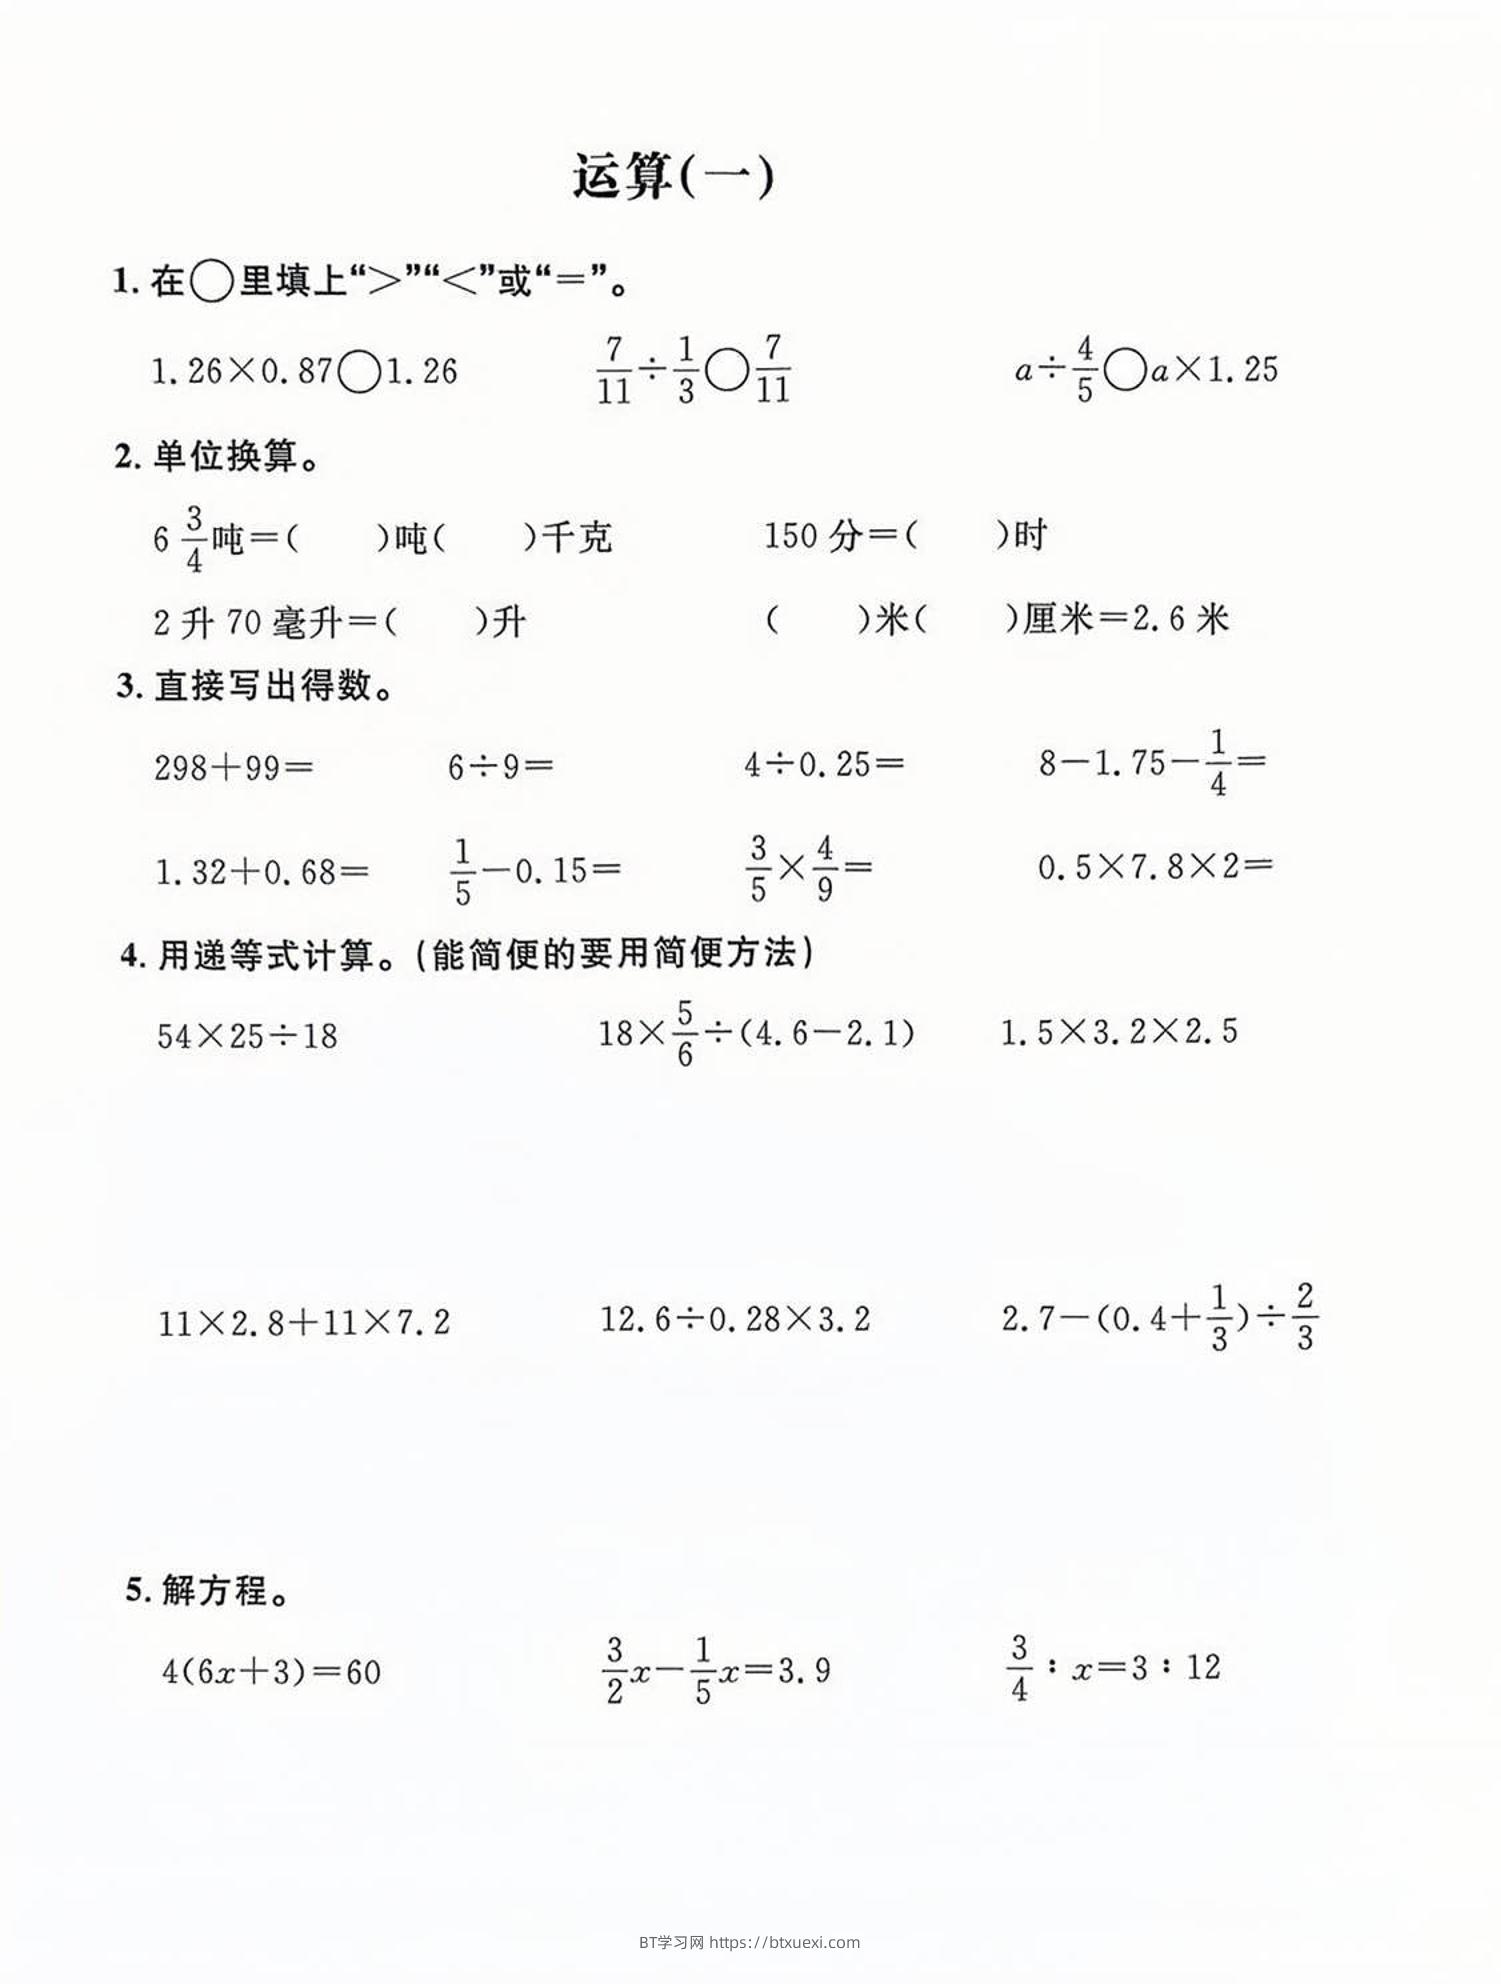 运算(一)
1. 在○里填上“>”“<”或“=”。
1.26×0.87○1.26 7/11÷1/3○7/11 a÷4/5○a×1.25
2. 单位换算。
6 3/4吨=( )吨( )千克 150分=( )时
2升70毫升=( )升 ( )米( )厘米=2.6米
3. 直接写出得数。
298+99= 6÷9= 4÷0.25= 8-1.75-1/4=
1.32+0.68= 1/5-0.15= 3/5×4/9= 0.5×7.8×2=
4. 用递等式计算。(能简便的要用简便方法)
54×25÷18 18×5/6÷(4.6-2.1) 1.5×3.2×2.5
11×2.8+11×7.2 12.6÷0.28×3.2 2.7-(0.4+1/3)÷2/3
5. 解方程。
4(6x+3)=60 3/2x-1/5x=3.9 3/4：x=3：12
BT学习网 https://btxuexi.com